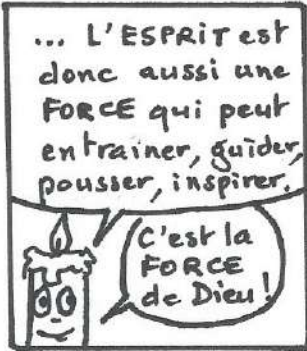 ... L'ESPRIT est
donc aussi une
FORCE qui peut
entrainer, guider,
pousser, inspirer.
C'est la
FORCE
de Dieu!